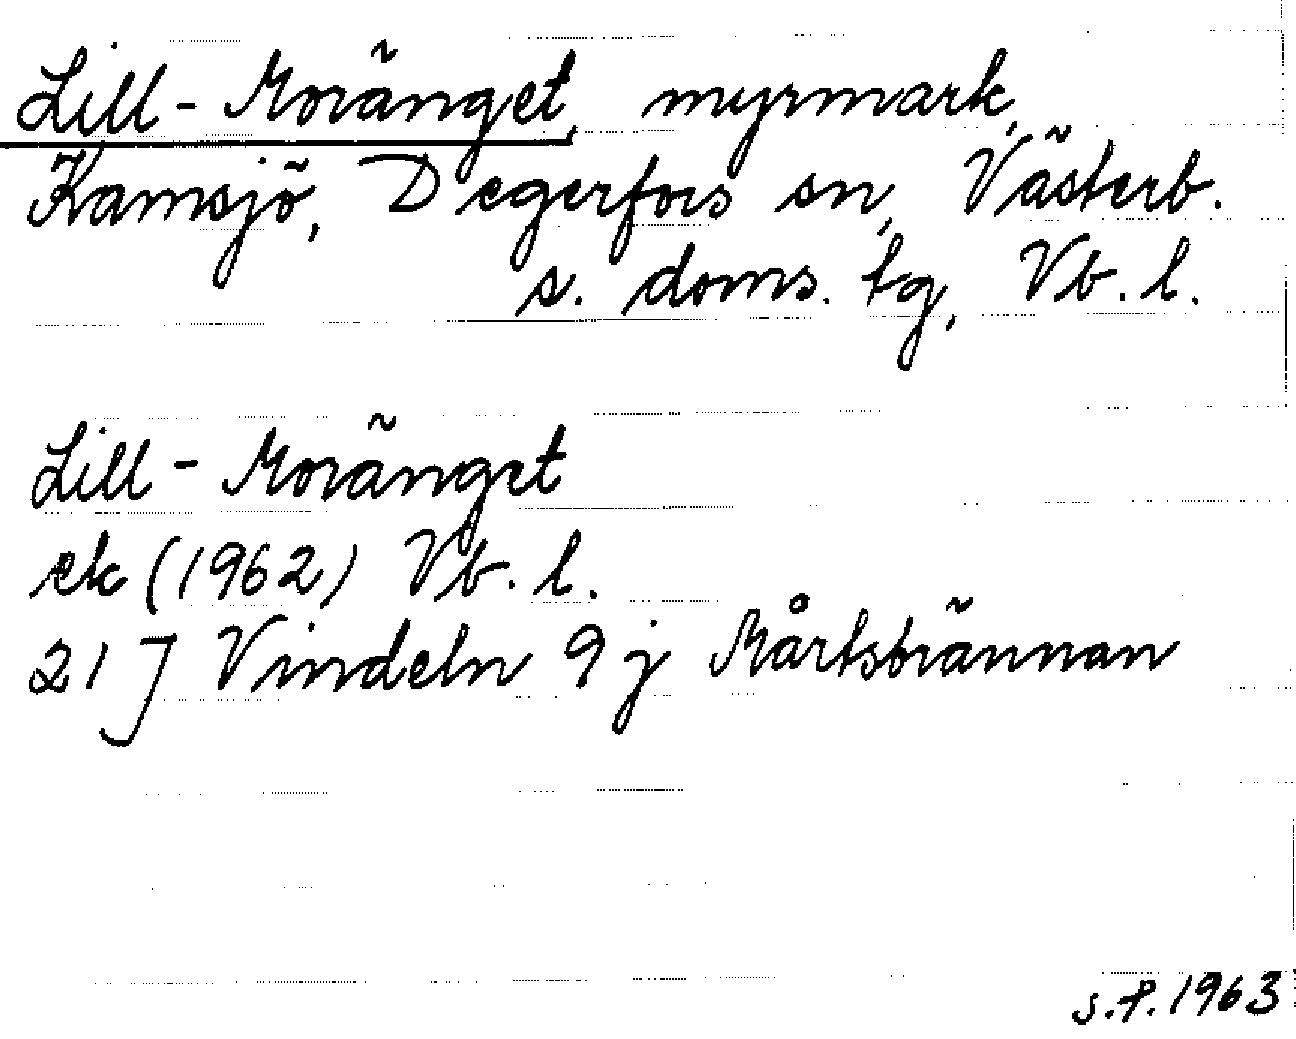 Lill-Moränget, myrmark,
Kamsjö, Degerfors sn, Västerb.
s. doms. tg, Vb. l.
Lill-Moränget
ek (1962) Vb. l.
21 J Vindeln 9 j Mårtsbrännan
S.P. 1963